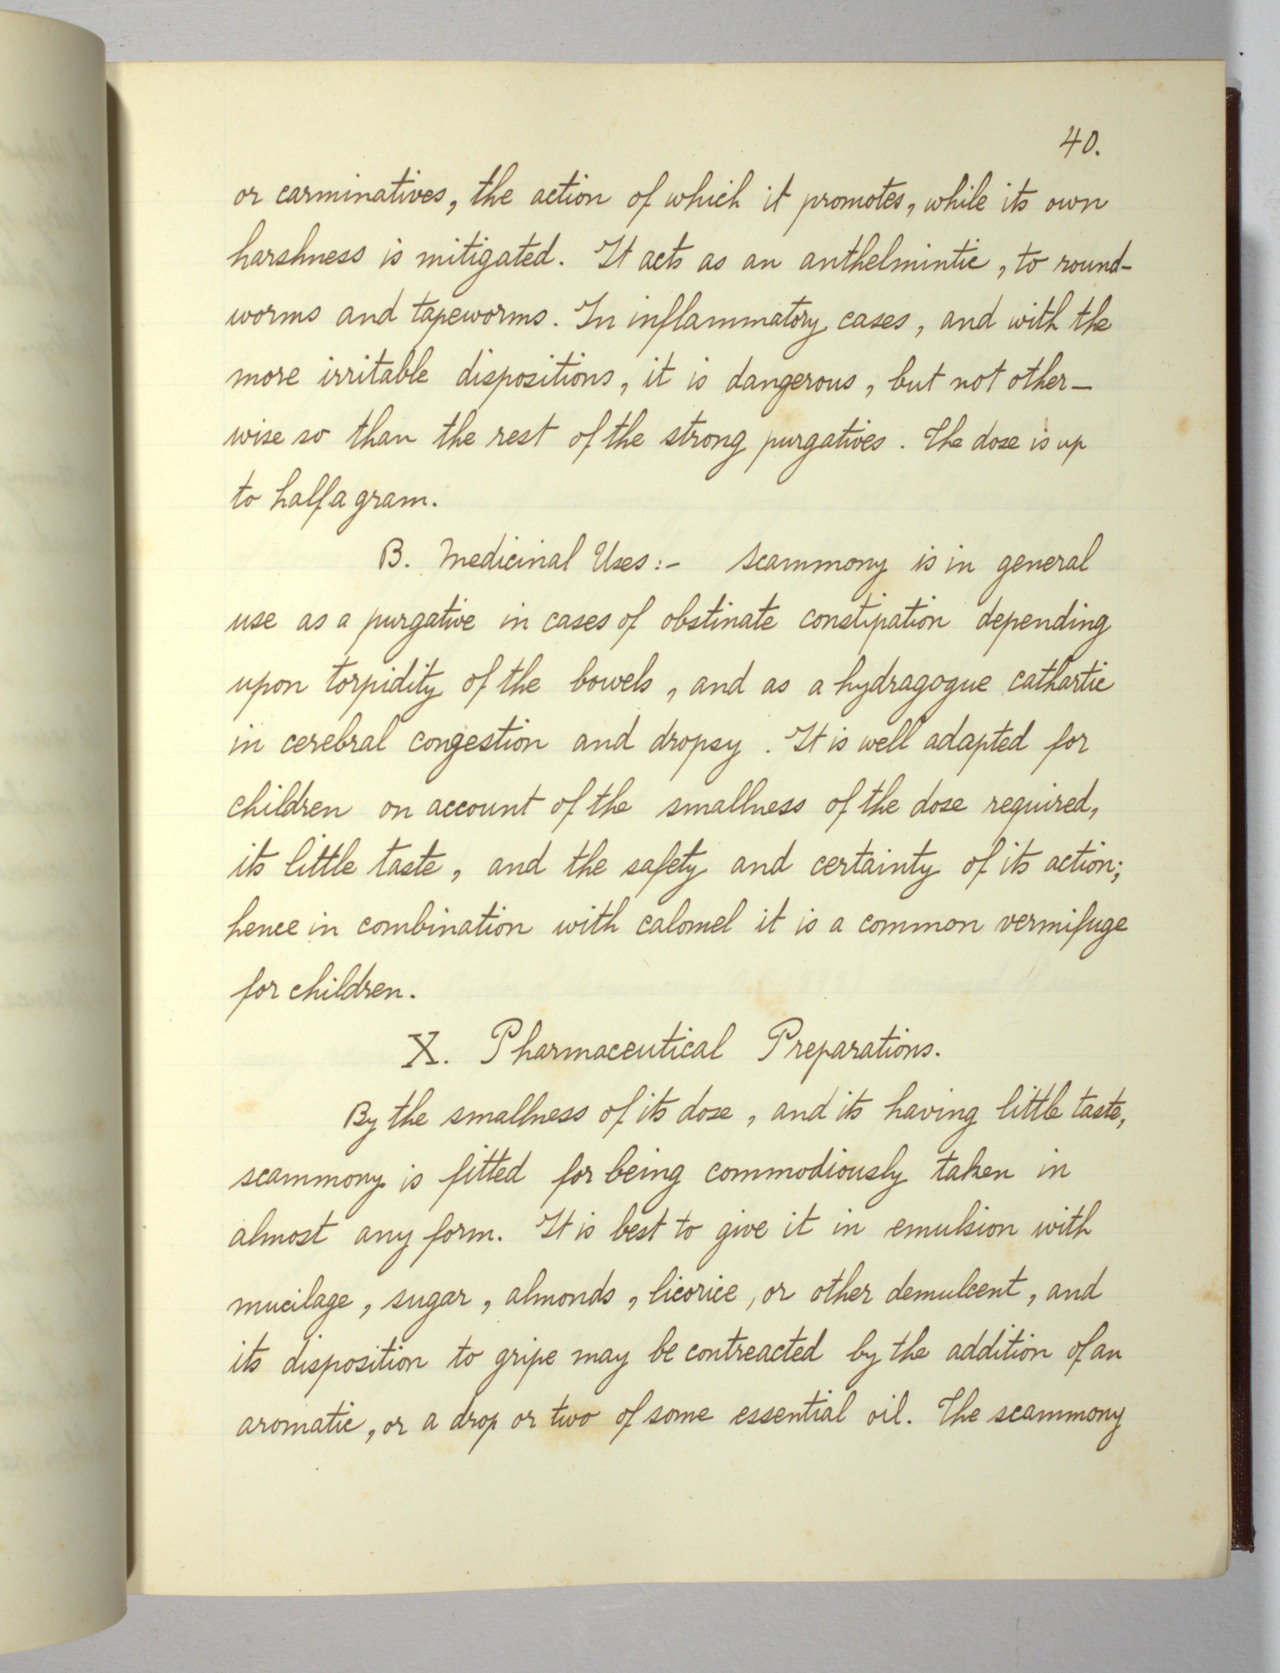 40.
or carminatives, the action of which it promotes, while its own
harshness is mitigated. It acts as an anthelmintic, to round-
worms and tapeworms. In inflammatory cases, and with the
more irritable dispositions, it is dangerous, but not other-
wise so than the rest of the strong purgatives. The dose is up
to half a gram.
B. Medicinal Uses:- Scammony is in general
use as a purgative in cases of obstinate constipation depending
upon torpidity of the bowels, and as a hydragogue cathartic
in cerebral congestion and dropsy. It is well adapted for
children on account of the smallness of the dose required,
its little taste, and the safety and certainty of its action;
hence in combination with calomel it is a common vermifuge
for children.
X. Pharmaceutical Preparations.
By the smallness of its dose, and its having little taste,
scammony is fitted for being commodiously taken in
almost any form. It is best to give it in emulsion with
mucilage, sugar, almonds, licorice, or other demulcent, and
its disposition to gripe may be contreacted by the addition of an
aromatic, or a drop or two of some essential oil. The scammony